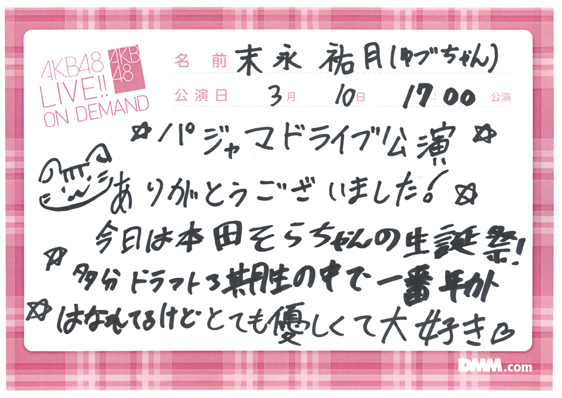 AKB48
LIVE!!
ON DEMAND
AKB
48
名前 末永 祐月(ゆづちゃん)
公演日 3月 10日 17:00 公演
☆パジャマドライブ公演☆
ありがとうございました!☆
今日は本田そらちゃんの生誕祭!
☆多分ドラフト3期生の中で一番年が
☆はなれてるけどとても優しくて大好き♡
DMM.com